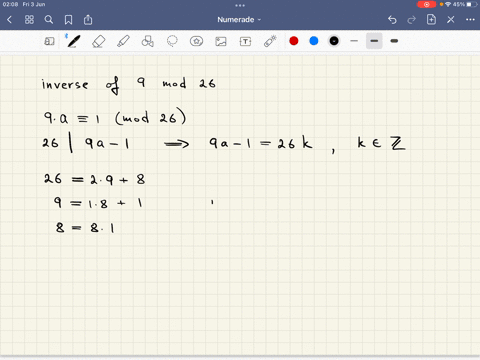 02:08 Fri 3 Jun
45%
Numerade
inverse of 9 mod 26
9.a ≡ 1 (mod 26)
26 | 9a-1 ⟹ 9a-1 = 26k , k ∈ ℤ
26 = 2.9 + 8
9 = 1.8 + 1
8 = 8.1